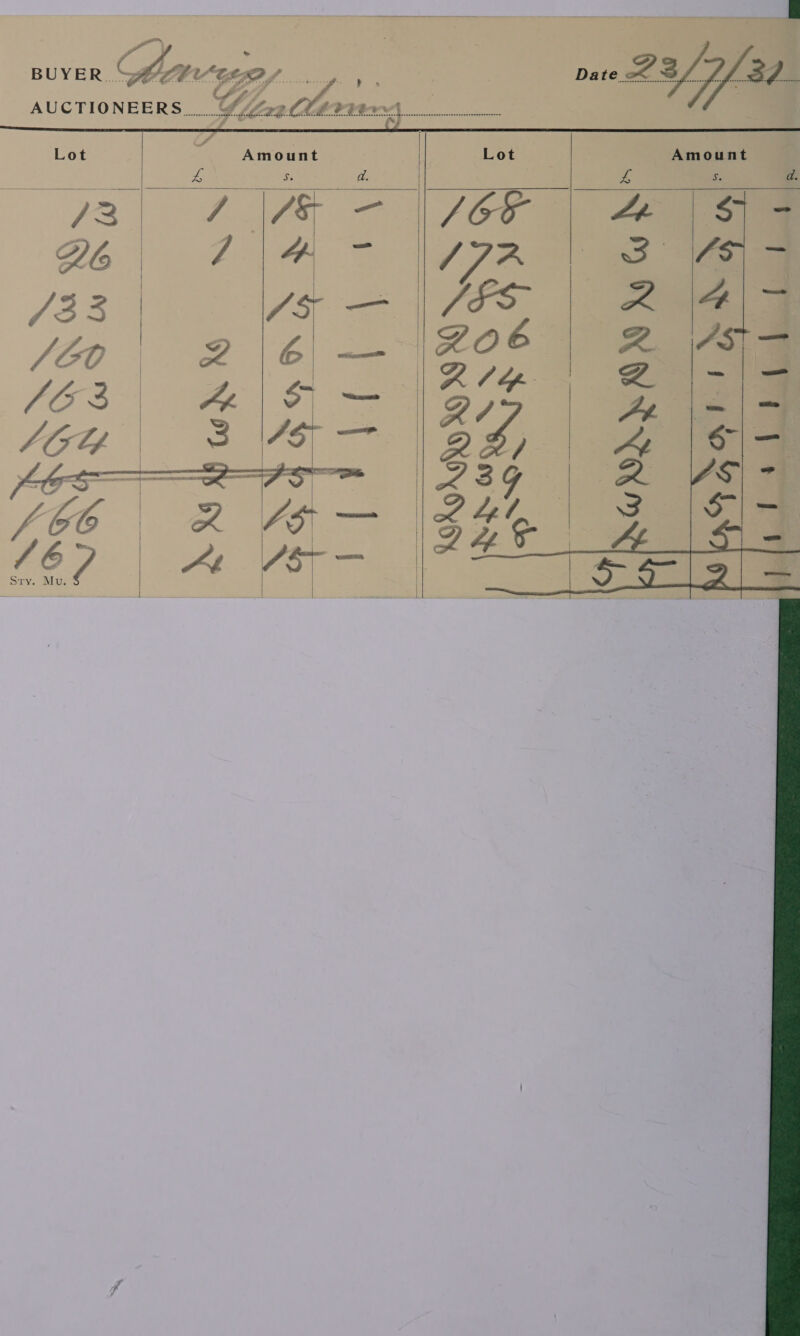 BUYER
Date 23/7/31
AUCTIONEERS Glendining
Lot Amount Lot Amount
£ s. d. £ s. d.
13 1 18 – 168 4 5 –
26 1 4 – 172 3 15 –
133 15 – 185 2 4 –
160 2 6 – 206 2 15 –
163 4 5 – 214 2 – –
164 3 15 – 217 4 – –
165 2 15 – 221 4 5 –
166 2 15 – 239 2 15 –
167 4 15 – 241 3 5 –
248 4 5 –
55 2 –
Sty. Mu. 8